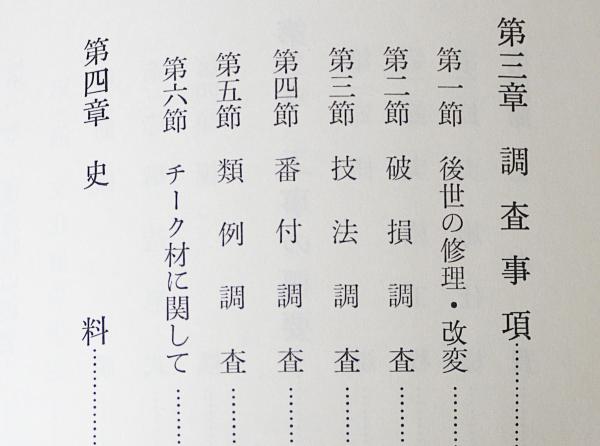 第三章 調査事項……………
第一節 後世の修理・改変…………
第二節 破損調査…………
第三節 技法調査…………
第四節 番付調査…………
第五節 類例調査…………
第六節 チーク材に関して…………
第四章 史料……………